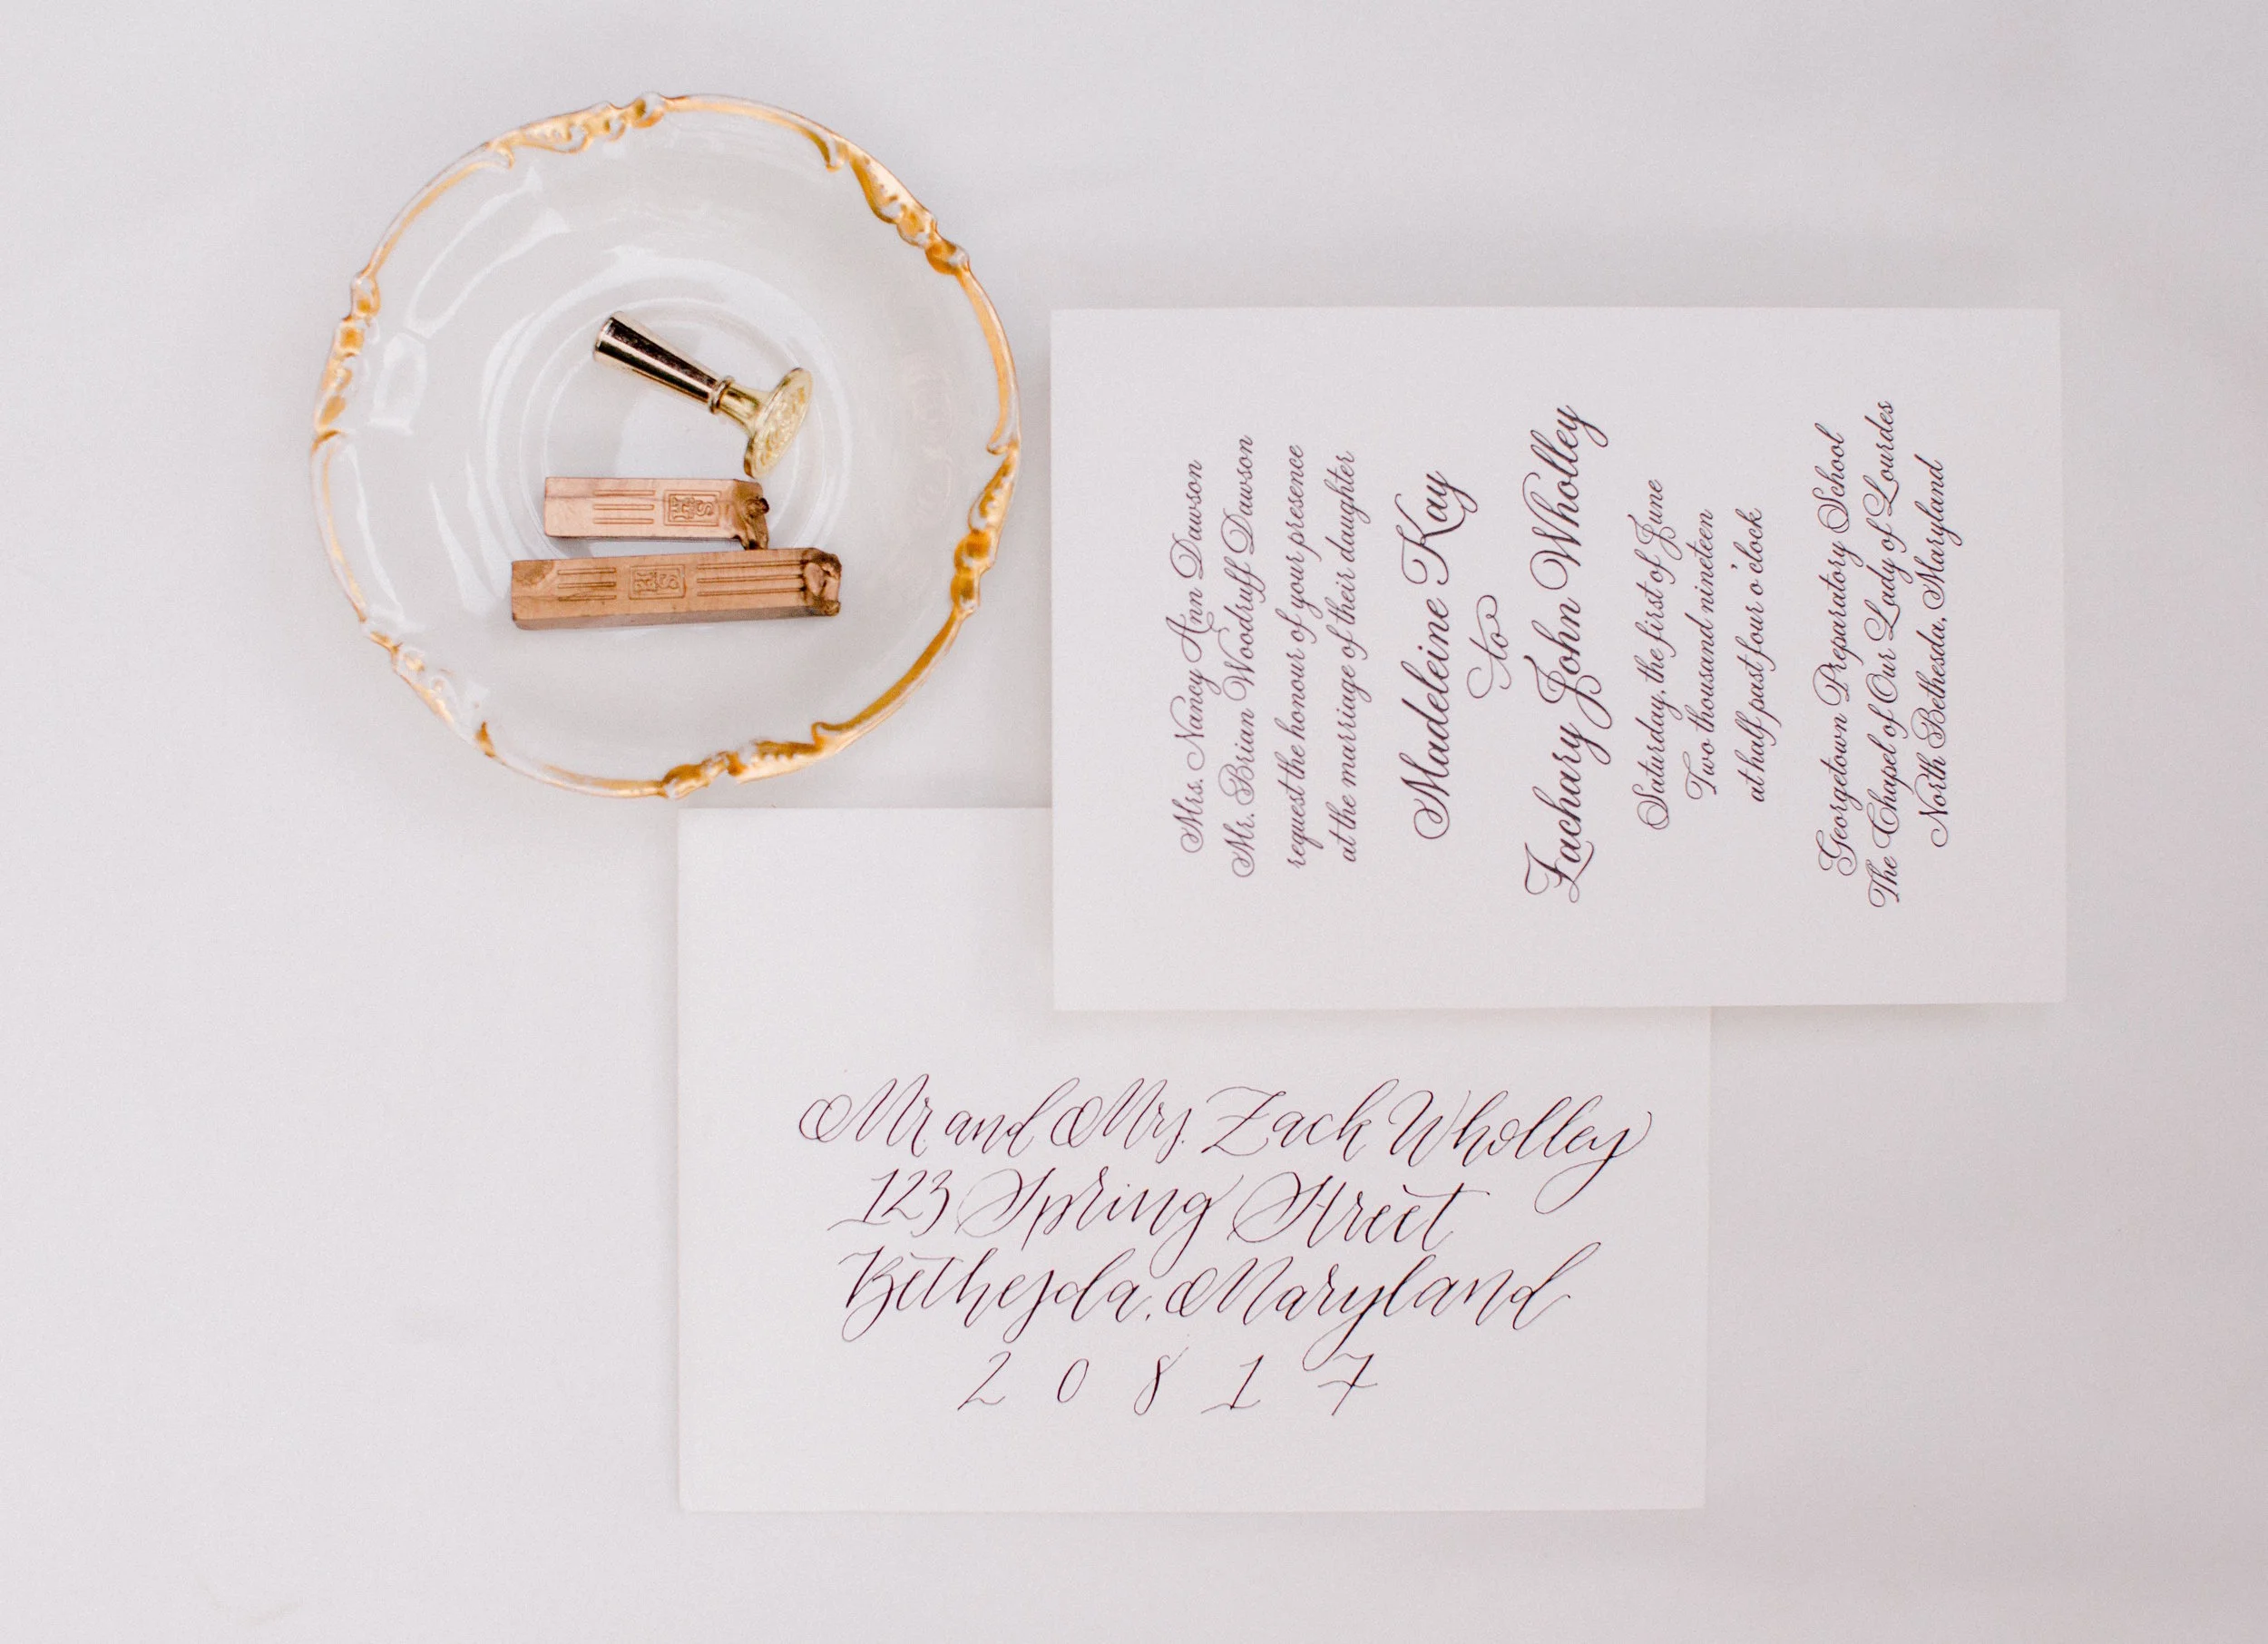 Mrs. Nancy Ann Dawson
Mr. Brian Woodruff Dawson
request the honour of your presence
at the marriage of their daughter
Madeleine Kay
to
Zachary John Wholley
Saturday, the first of June
Two thousand nineteen
at half past four o'clock
Georgetown Preparatory School
The Chapel of Our Lady of Lourdes
North Bethesda, Maryland
Mr and Mrs. Zack Wholley
123 Spring Street
Bethesda, Maryland
2 0 8 1 7